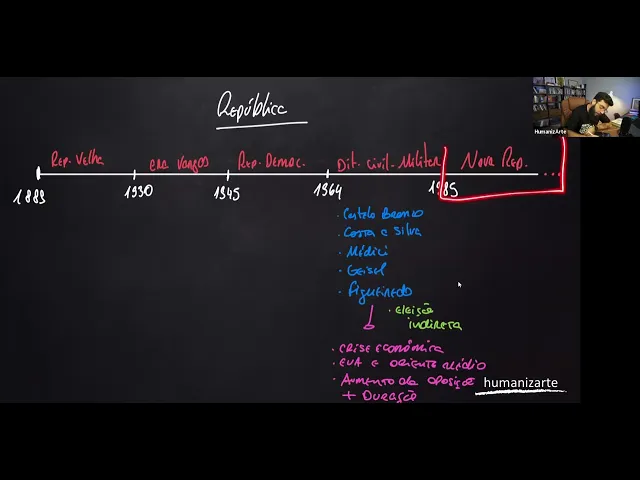 República
Rep. Velha
era Vargas
Rep. Democ.
Dit. Civil-Militar
Nova Rep.
...
1889
1930
1945
1964
1985
• Castelo Branco
• Costa e Silva
• Médici
• Geisel
• Figueiredo
• Eleição
indireta
• Crise econômica
• EUA e Oriente Médio
• Aumento da oposição
+ Duração
humanizarte
HumanizArte